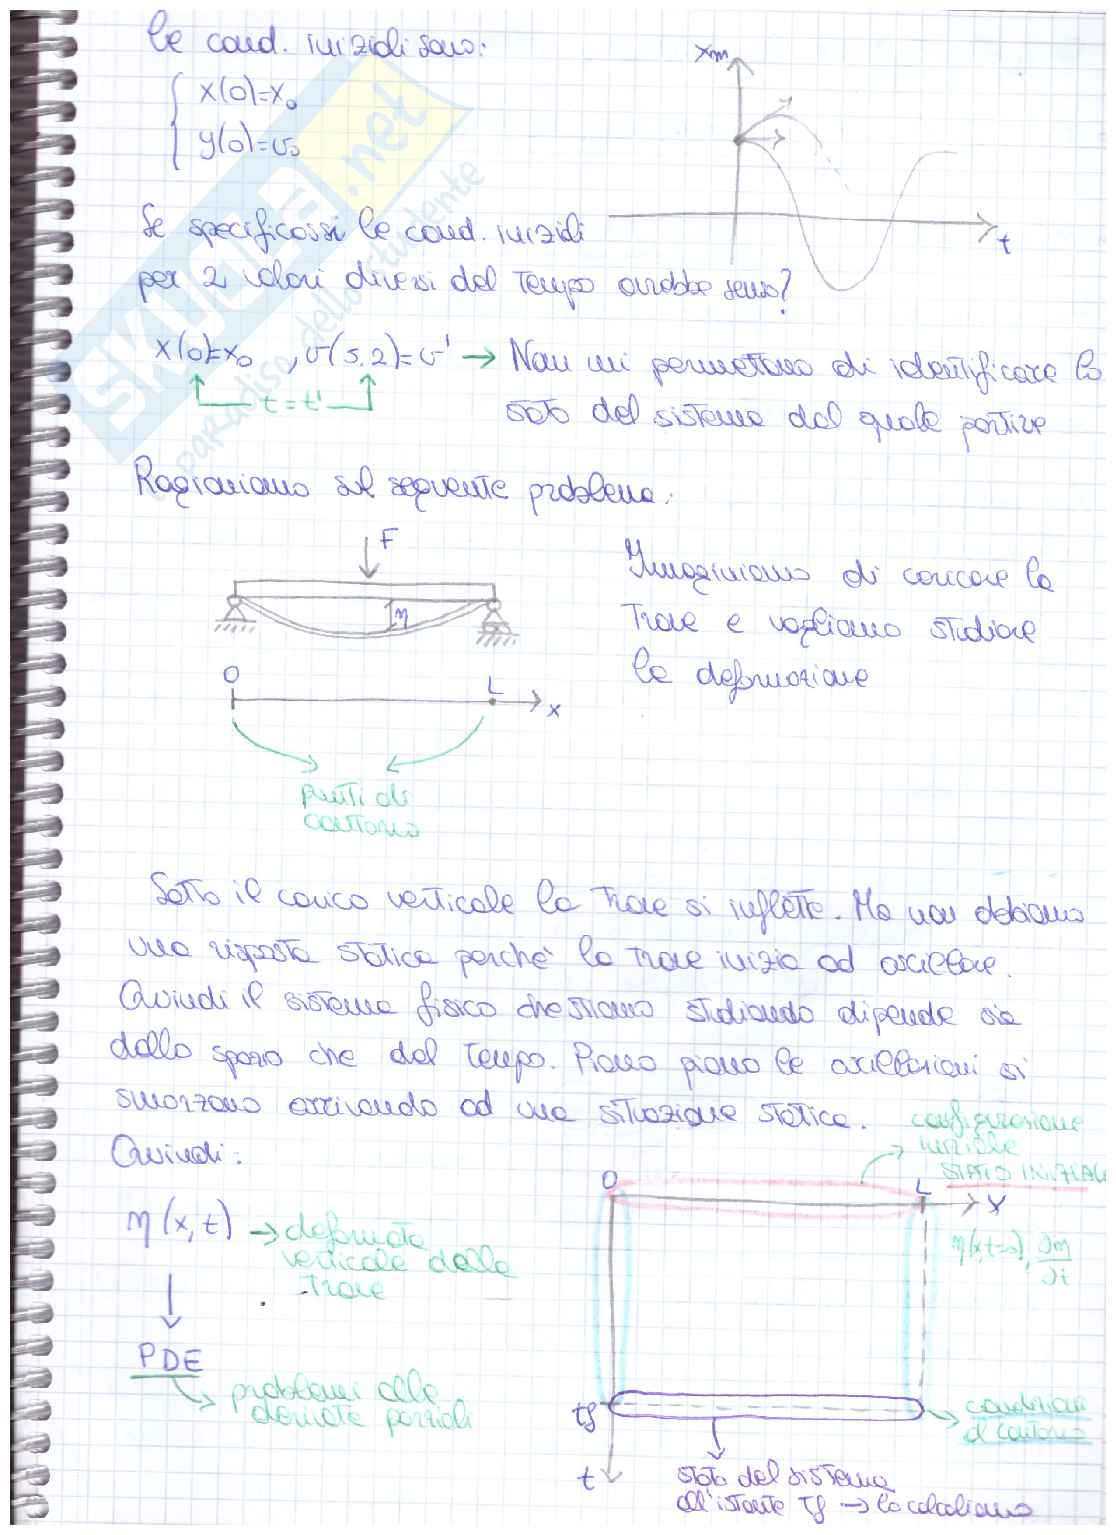 le cond. iniziali sono:
x(0)=x₀
y(0)=v₀
xm
t
Se specificassi le cond. iniziali
per 2 valori diversi del tempo avrebbe senso?
x(0)=x₀ , v(5,2)=v' → Non mi permettono di identificare lo
t = t'
stato del sistema dal quale partire
Ragioniamo sul seguente problema:
F
η
Immaginiamo di caricare la
trave e vogliamo studiare
la deformazione
O
L
x
punti di
contorno
Sotto il carico verticale la trave si inflette. Ma non abbiamo
una risposta statica perchè la trave inizia ad oscillare.
Quindi il sistema fisico che stiamo studiando dipende sia
dallo spazio che dal tempo. Piano piano le oscillazioni si
smorzano arrivando ad una situazione statica.
Quindi:
configurazione
iniziale
STATO INIZIALE
O
L
x
η(x,t) → deformata
verticale della
trave
η(x,t=0), ∂η/∂t
PDE
problemi alle
derivate parziali
tf
condizioni
al contorno
t
stato del sistema
all'istante tf → lo calcoliamo
SKUOLA.net
paradiso dello studente